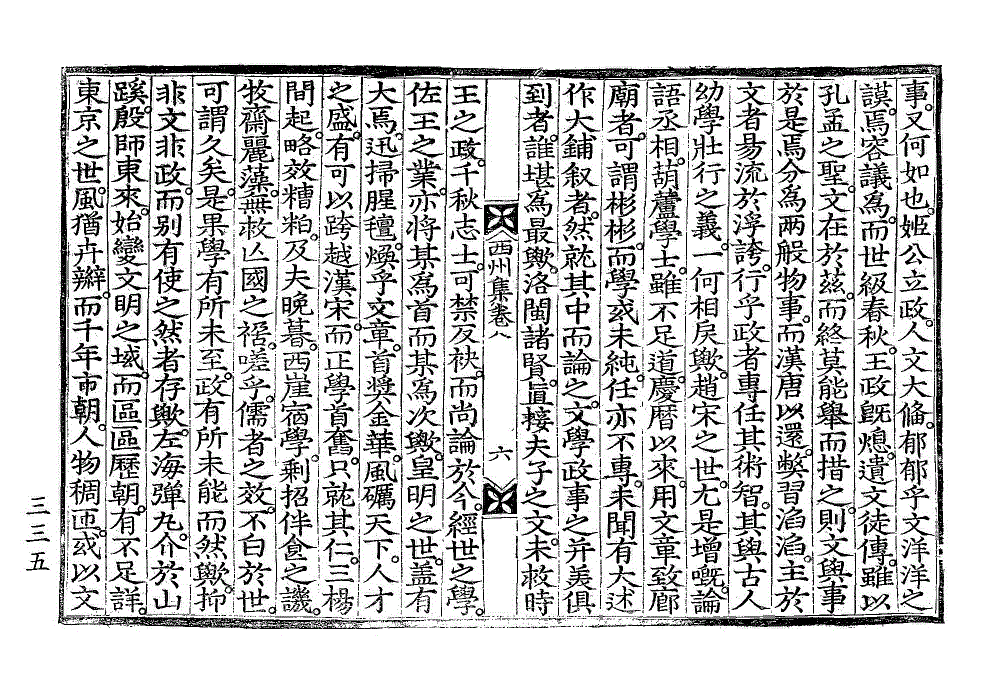 事。又何如也。姬公立政。人文大備。郁郁乎文。洋洋之
謨。焉容議爲。而世級春秋。王政旣熄。遺文徒傳。雖以
孔孟之聖。文在於玆。而終莫能擧而措之。則文與事
於是焉分爲兩般物事。而漢唐以還。弊習滔滔。主於
文者易流於浮誇。行乎政者專任其術智。其與古人
幼學壯行之義。一何相戾歟。趙宋之世。尤是增嘅。論
語丞相。葫蘆學士。雖不足道。慶曆以來。用文章致廊
廟者。可謂彬彬。而學或未純。任亦不專。未聞有大述
作大鋪叙者。然就其中而論之。文學政事之并美俱
到者。誰堪爲最歟。洛閩諸賢。直接夫子之文。未救時
西州集卷八
六
王之政。千秋志士。可禁反袂。而尚論於今。經世之學。
佐王之業。亦將某爲首而某爲次歟。皇明之世。蓋有
大焉。迅掃腥羶。煥乎文章。首奬金華。風礪天下。人才
之盛。有可以跨越漢宋。而正學首奮。只就其仁。三楊
間起。略效糟粕。及夫晩暮。西崖宿學。剩招伴食之譏。
牧齋麗藻。無救亾國之禍。嗟乎。儒者之效。不白於世。
可謂久矣。是果學有所未至。政有所未能而然歟。抑
非文非政。而别有使之然者存歟。左海彈丸。介於山
蹊。殷師東來。始變文明之域。而區區歷朝。有不足詳。
東京之世。風猶卉辮。而千年市朝。人物稠匝。或以文
三三五